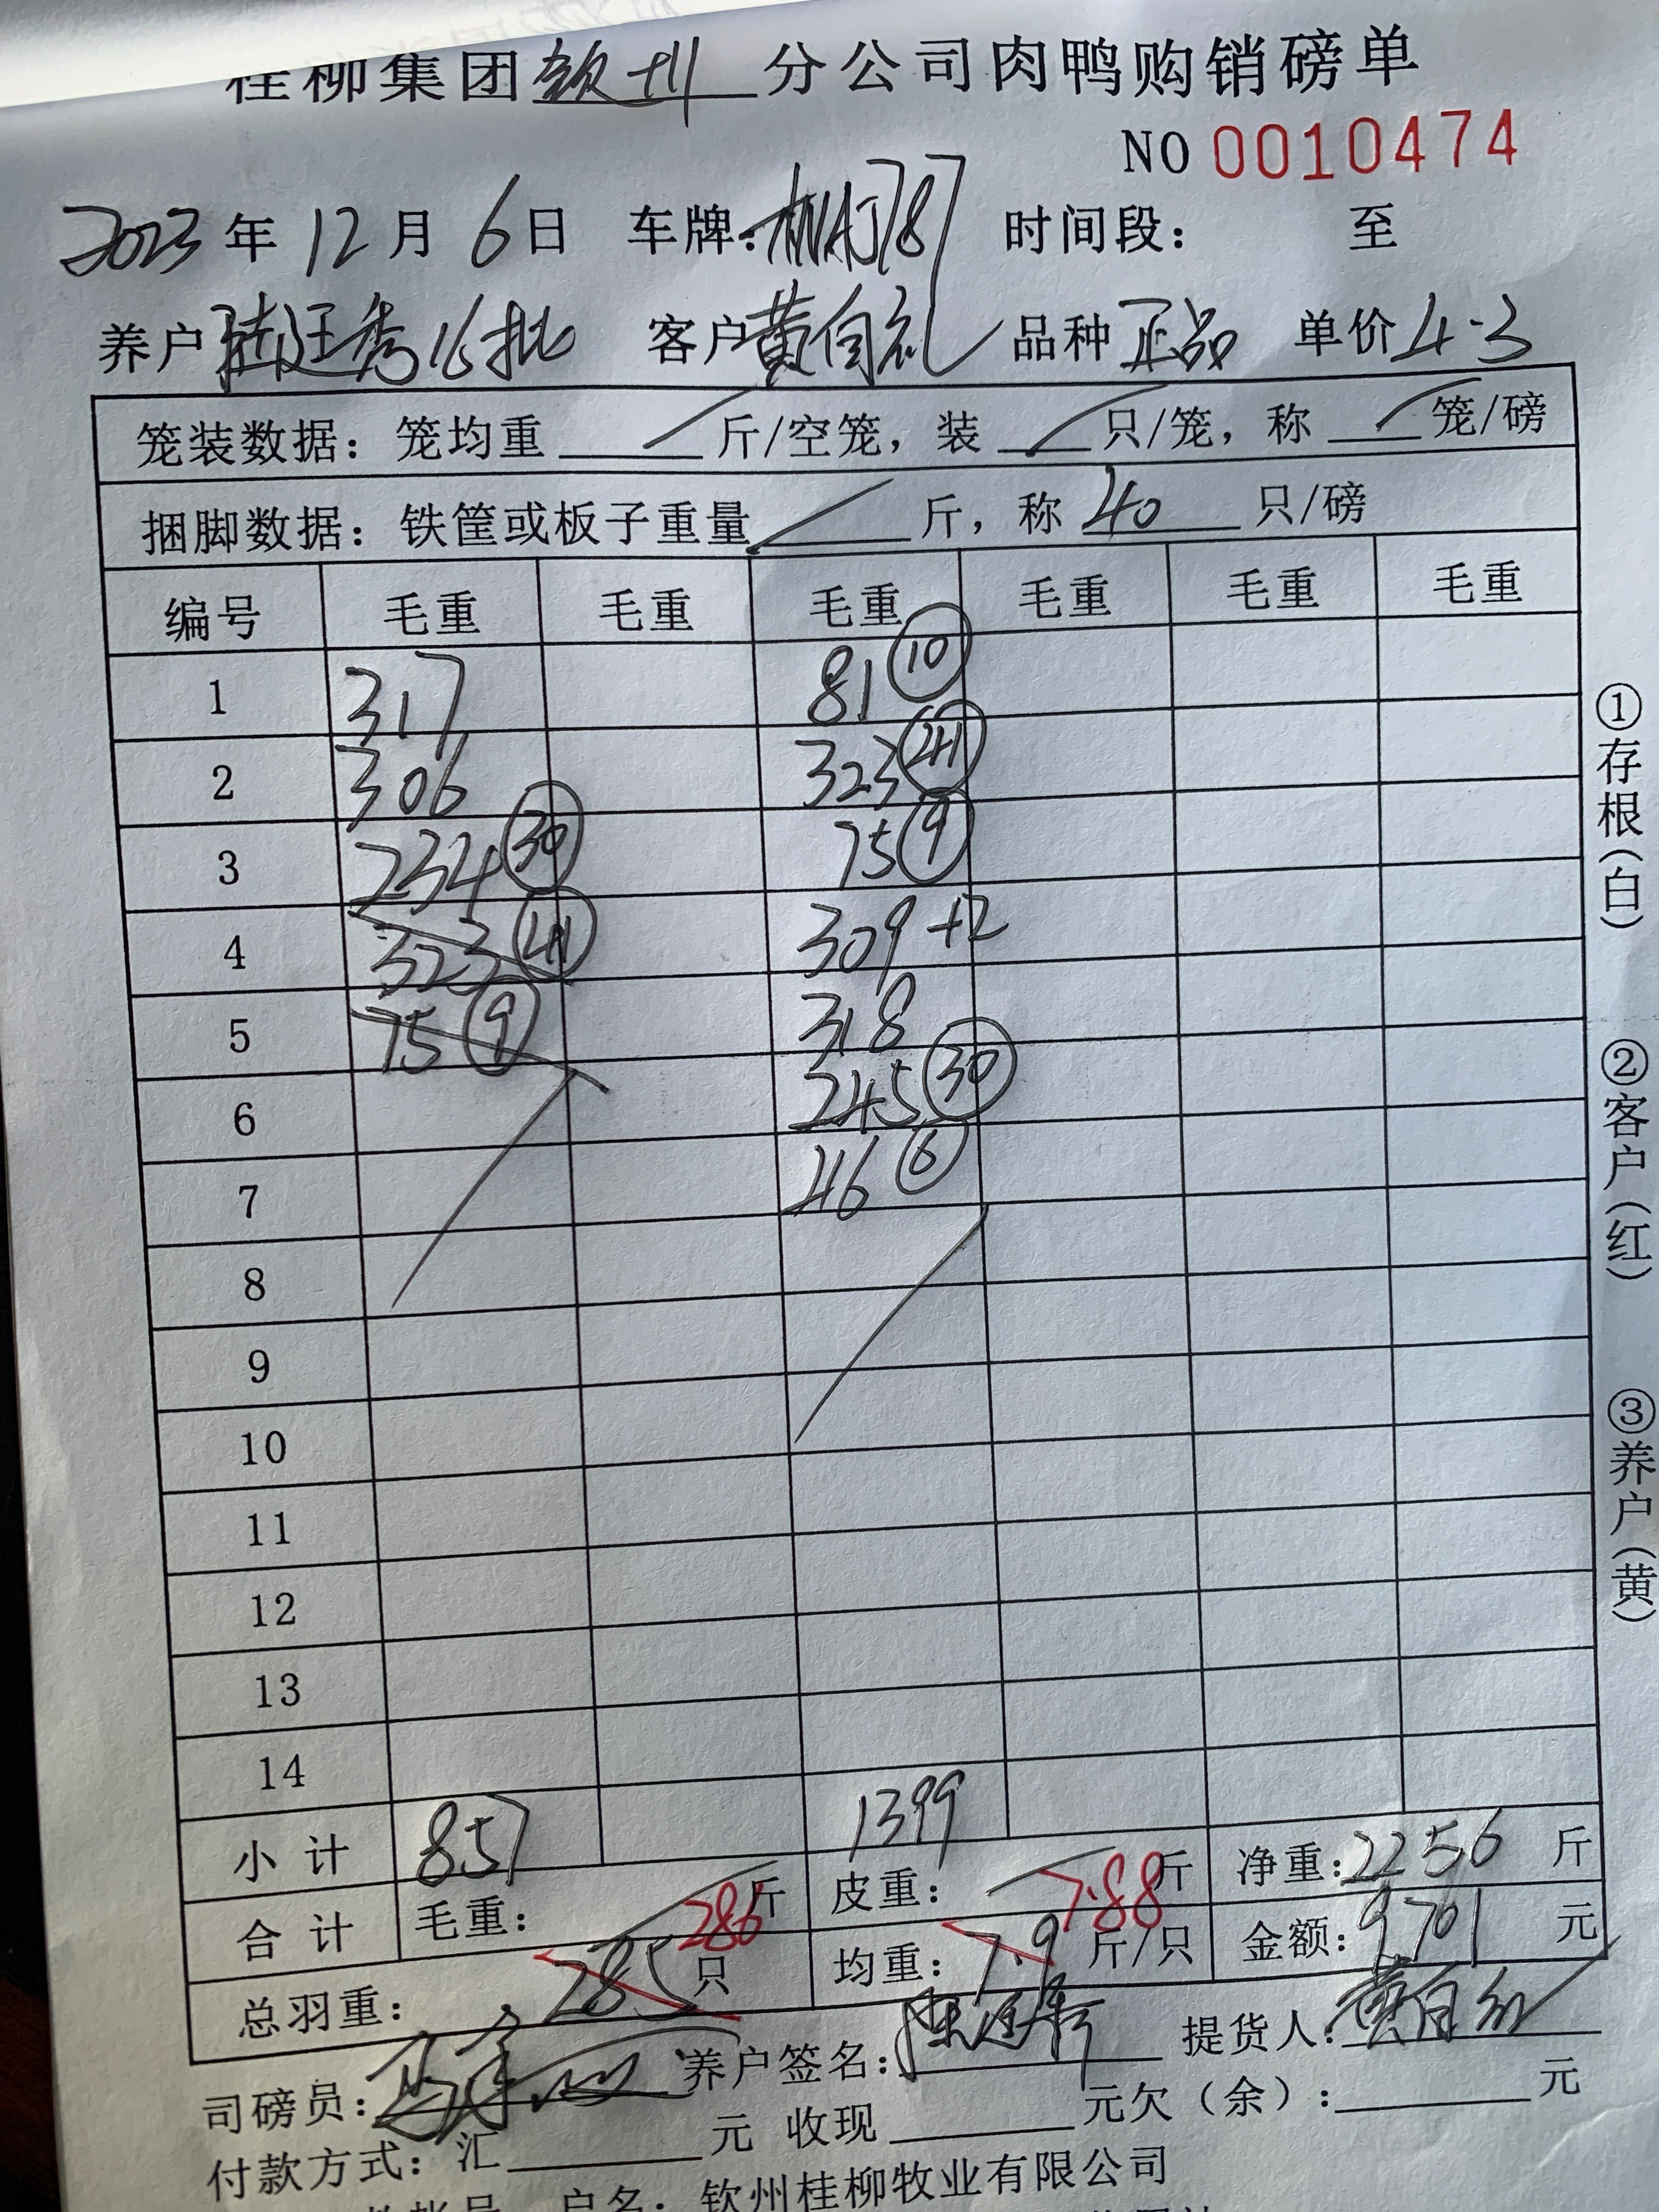 桂柳集团钦州分公司肉鸭购销磅单
NO 0010474
2023年12月6日 车牌: 时间段: 至
养户 陆廷秀16批 客户 黄自礼 品种 正品 单价 4.3
笼装数据: 笼均重 斤/空笼, 装 只/笼, 称 笼/磅
捆脚数据: 铁筐或板子重量 斤, 称 40 只/磅
编号 毛重 毛重 毛重 毛重 毛重 毛重
1 317 81 ⑩
2 306 323 (41)
3 234 (30) 75 ⑨
4 323 (41) 309+2
5 75 ⑨ 318
6 245 (30)
7 46 ⑥
8
9
10
11
12
13
14
小计 857 1399
合计 毛重: 斤 皮重: 斤 净重: 2256 斤
总羽重: 285 286 只 均重: 7.9 7.88 斤/只 金额: 9701 元
司磅员: 养户签名: 陆廷秀 提货人: 黄自礼
付款方式: 汇 元 收现 元欠(余): 元
户名: 钦州桂柳牧业有限公司
①存根(白)
②客户(红)
③养户(黄)